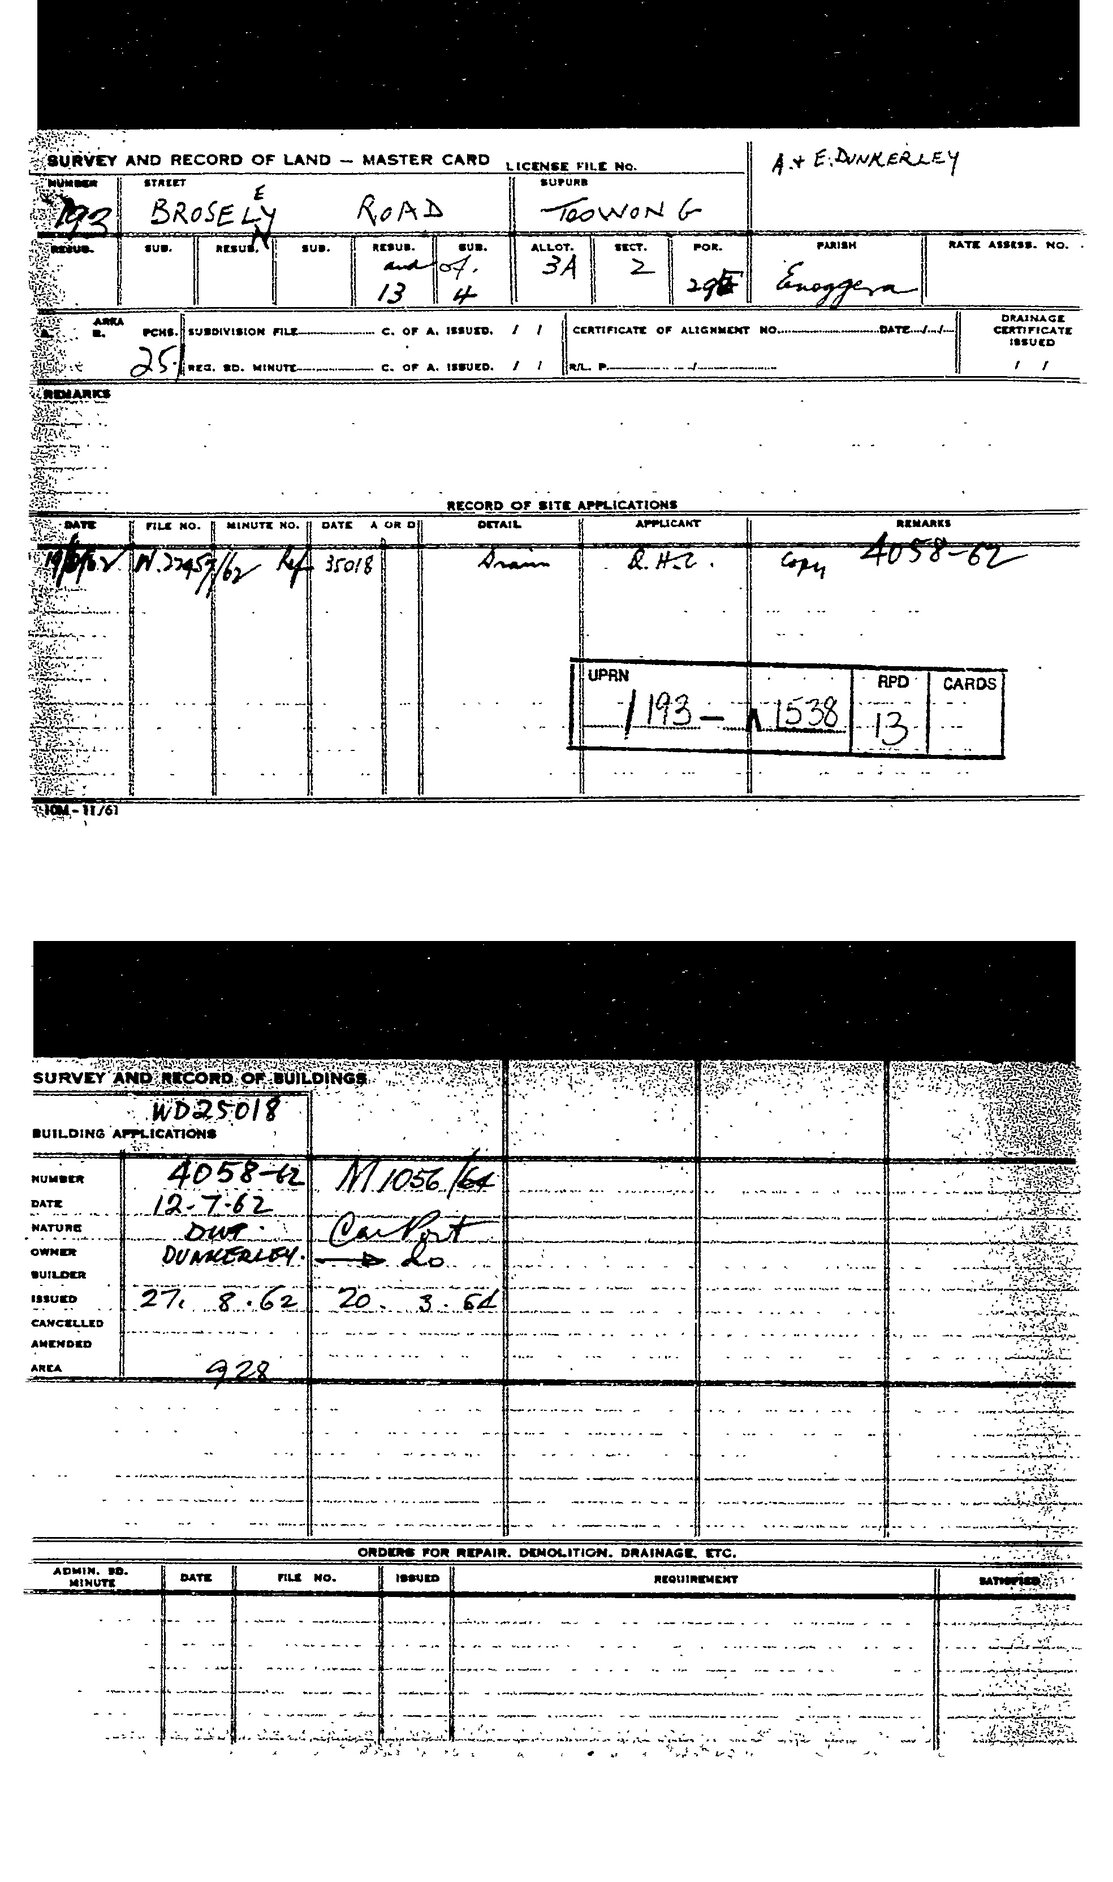 SURVEY AND RECORD OF LAND — MASTER CARD LICENSE FILE NO. A. & E. DUNKERLEY
NUMBER STREET SUPURB
193 BROSELEY ROAD TOOWONG
RESUB. SUB. RESUB. SUB. RESUB. SUB. ALLOT. SECT. POR. PARISH RATE ASSESS. NO.
and of. 3A 2 Enoggera
13 4
AREA R. PCHS. SUBDIVISION FILE C. OF A. ISSUED. / / CERTIFICATE OF ALIGNMENT NO. DATE / / DRAINAGE CERTIFICATE ISSUED
25.1 REG. BD. MINUTE C. OF A. ISSUED. / / R/L. P. / / /
REMARKS
RECORD OF SITE APPLICATIONS
DATE FILE NO. MINUTE NO. DATE A OR D DETAIL APPLICANT REMARKS
/62 Ref 35018 Drain Q.H.C. Copy 4058-62
UPRN RPD CARDS
/ 193 — 1538 13
10M – 11/61
SURVEY AND RECORD OF BUILDINGS
WD25018
BUILDING APPLICATIONS
NUMBER 4058-62 M1056/64
DATE 12-7-62
NATURE Dwg. Car Port
OWNER DUNKERLEY. → do
BUILDER
ISSUED 27. 8.62 20. 3. 64
CANCELLED
AMENDED
AREA 928
ORDERS FOR REPAIR. DEMOLITION. DRAINAGE. ETC.
ADMIN. BD. MINUTE DATE FILE NO. ISSUED REQUIREMENT SATISFIED